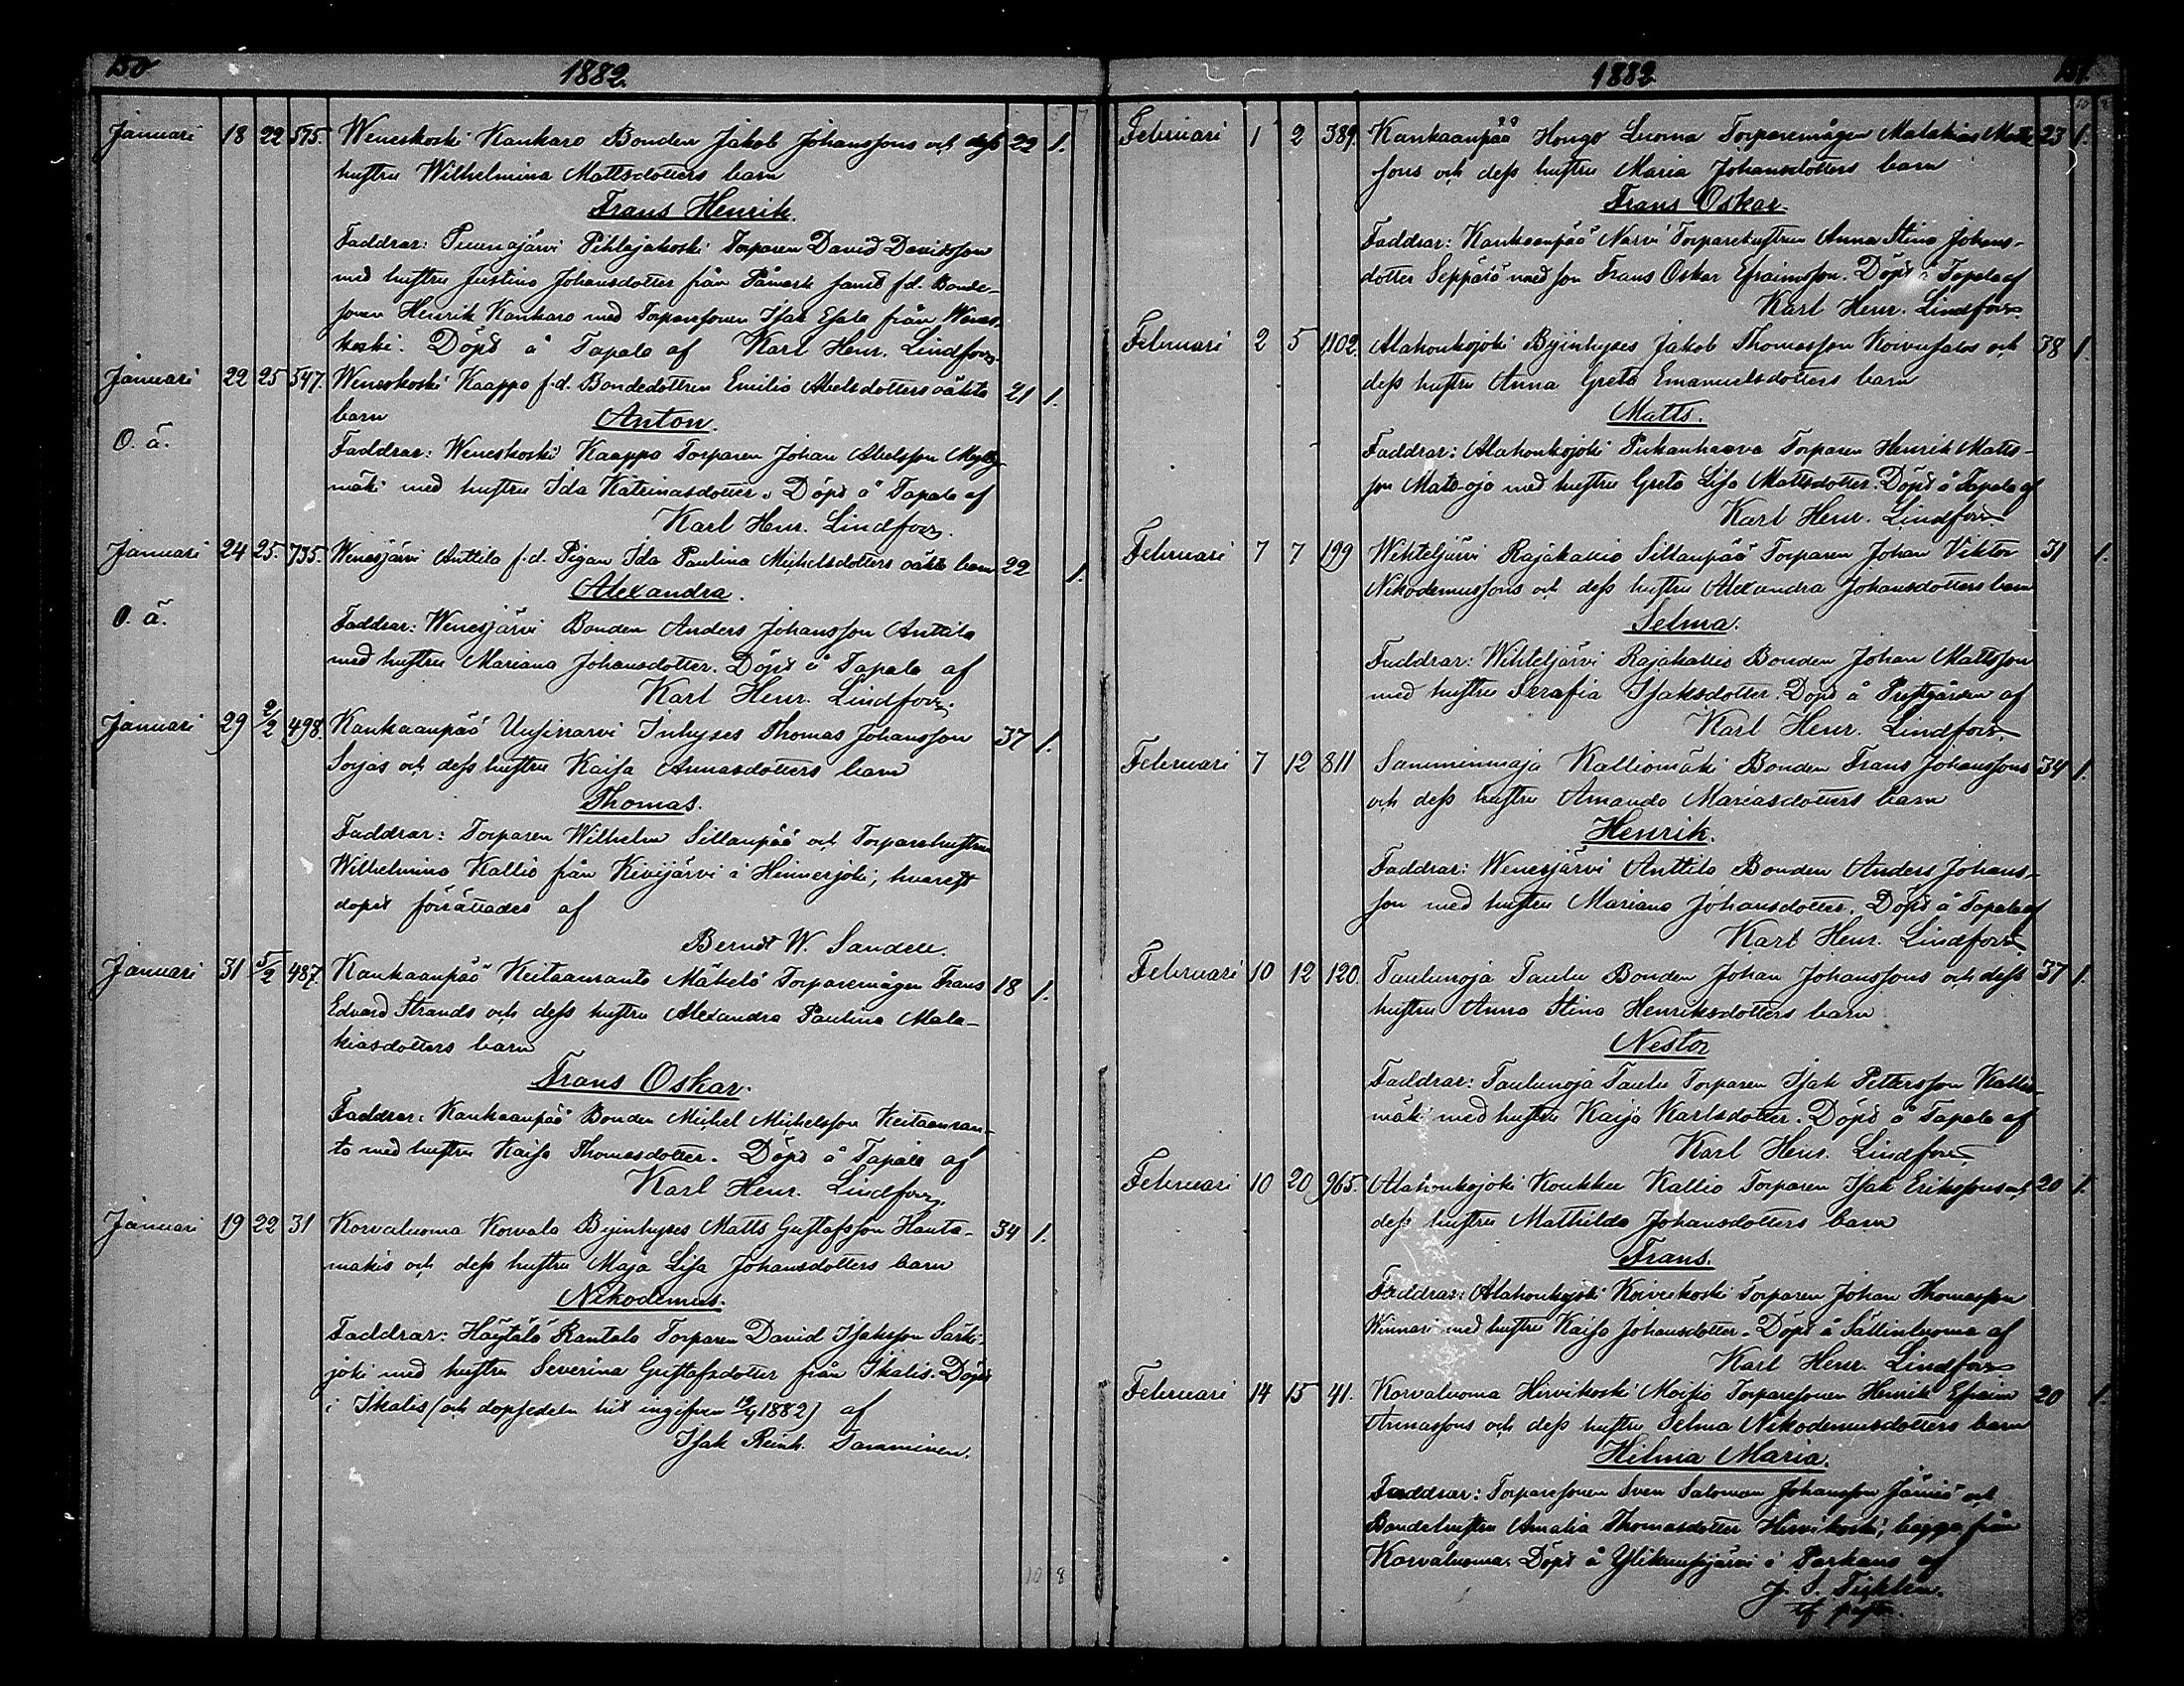 150
1882.
Januari 18 22 575. Weneskoski Kankaro Bonden Jakob Johanssons och dess 22 1.
hustru Wilhelmina Mattsdotters barn
Frans Henrik.
Faddrar: Pihlajakoski Torparen David Davidsson
med hustru Justina Johansdotter från Påmark samt f.d. Bonde-
sonen Henrik Kankaro med Torparesonen Isak Esala från Wenes-
koski. Döpt å Tapala af Karl Henr. Lindfors.
Januari 22 25 547. Weneskoski Kaappo f.d. Bondedottren Emilia Abelsdotters oäkta 21 1.
barn Anton.
O. ä.
Faddrar: Weneskoski Kaappo Torparen Johan Abelsson
mäki med hustru Ida Katrinasdotter. Döpt å Tapala af
Karl Henr. Lindfors.
Januari 24 25. 735. Wenesjärvi Anttila f.d. Pigan Ida Paulina Michelsdotters oäkta barn 22 1.
Alexandra.
O. ä.
Faddrar: Wenesjärvi Bonden Anders Johansson Anttila
med hustru Mariana Johansdotter. Döpt å Tapala af
Karl Henr. Lindfors.
Januari 29 2/2 498. Kankaanpää Inhyses Thomas Johansson 37 1.
Sorjas och dess hustru Kaisa Annasdotters barn
Thomas.
Faddrar: Torparen Wilhelm Sillanpää och Torparehustrun
Wilhelmina Kallio från Kivijärvi i Hinnerjoki, hvarest
dopet förrättades af
Berndt W. Sandell.
Januari 31 5/2 487. Kankaanpää Keitaanranta Mäkelä Torparemågen Frans 18 1.
Edvard Strands och dess hustru Alexandra Paulina Mala-
kiasdotters barn
Frans Oskar.
Faddrar: Kankaanpää Bonden Michel Michelsson Keitaanran-
ta med hustru Kaisa Thomasdotter. Döpt å Tapala af
Karl Henr. Lindfors.
Januari 19 22 31 Korvaluoma Korvala Byinhyses Matts Gustafsson Hauta- 34 1.
mäkis och dess hustru Maja Lisa Johansdotters barn
Nikodemus.
Faddrar: Häytälä Rantala Torparen David Isaksson Särki-
joki med hustru Severina Gustafsdotter från Ikalis. Döpt
i Ikalis (och dopsedeln hit ingifven 1882) af
Isak Reinh. Tamminen.
10 8
1882
151.
Februari 1 2 389. Kankaanpää Hongo Luoma Torparemågen Malakias Matts- 23 1.
sons och dess hustru Maria Johansdotters barn
Frans Oskar.
Faddrar: Kankaanpää Narvi Torparehustrun Anna Stina Johans-
dotter Seppälä med son Frans Oskar Efraimsson. Döpt å Tapala af
Karl Henr. Lindfors.
Februari 2 5 1102. Alahonkojoki Byinhyses Jakob Thomasson Koivusalos och 38 1.
dess hustru Anna Greta Emanuelsdotters barn
Matts.
Faddrar: Alahonkojoki Torparen Henrik Matts-
son Mato-oja med hustru Greta Lisa Mattsdotter. Döpt å Tapala af
Karl Henr. Lindfors.
Februari 7 7 199 Wihteljärvi Rajakallio Sillanpää Torparen Johan Viktor 31 1.
Nikodemussons och dess hustru Alexandra Johansdotters barn
Selma.
Faddrar: Wihteljärvi Rajakallio Bonden Johan Mattsson
med hustru Serafia Isaksdotter. Döpt å Prestgården af
Karl Henr. Lindfors.
Februari 7 12 811 Samminmaja Kalliomäki Bonden Frans Johanssons 34 1.
och dess hustru Amanda Mariasdotters barn
Henrik.
Faddrar: Wenesjärvi Anttila Bonden Anders Johans-
son med hustru Mariana Johansdotter. Döpt å Tapala af
Karl Henr. Lindfors.
Februari 10 12 120. Taulunoja Taulu Bonden Johan Johanssons och dess 37 1.
hustru Anna Stina Henriksdotters barn
Nestor
Faddrar: Taulunoja Taulu Torparen Isak Pettersson Kallio-
mäki med hustru Kaisa Karlsdotter. Döpt å Tapala af
Karl Henr. Lindfors.
Februari 10 20 965. Alahonkojoki Koukku Kallio Torparen Isak Erikssons och 20 1.
dess hustru Mathilda Johansdotters barn
Frans.
Faddrar: Alahonkojoki Koivukoski Torparen Johan Thomasson
Winnari med hustru Kaisa Johansdotter. Döpt å Sattinluoma af
Karl Henr. Lindfors
Februari 14 15 41. Korvaluoma Hirvikoski Moisio Torparesonen Henrik Efraim 20 1.
Annassons och dess hustru Selma Nikodemusdotters barn
Hilma Maria.
Faddrar: Torparesonen Sven Salomon Johansson och
Bondehustru Amalia Thomasdotter Hirvikoski, bägge från
Korvaluoma. Döpt å i Parkano af